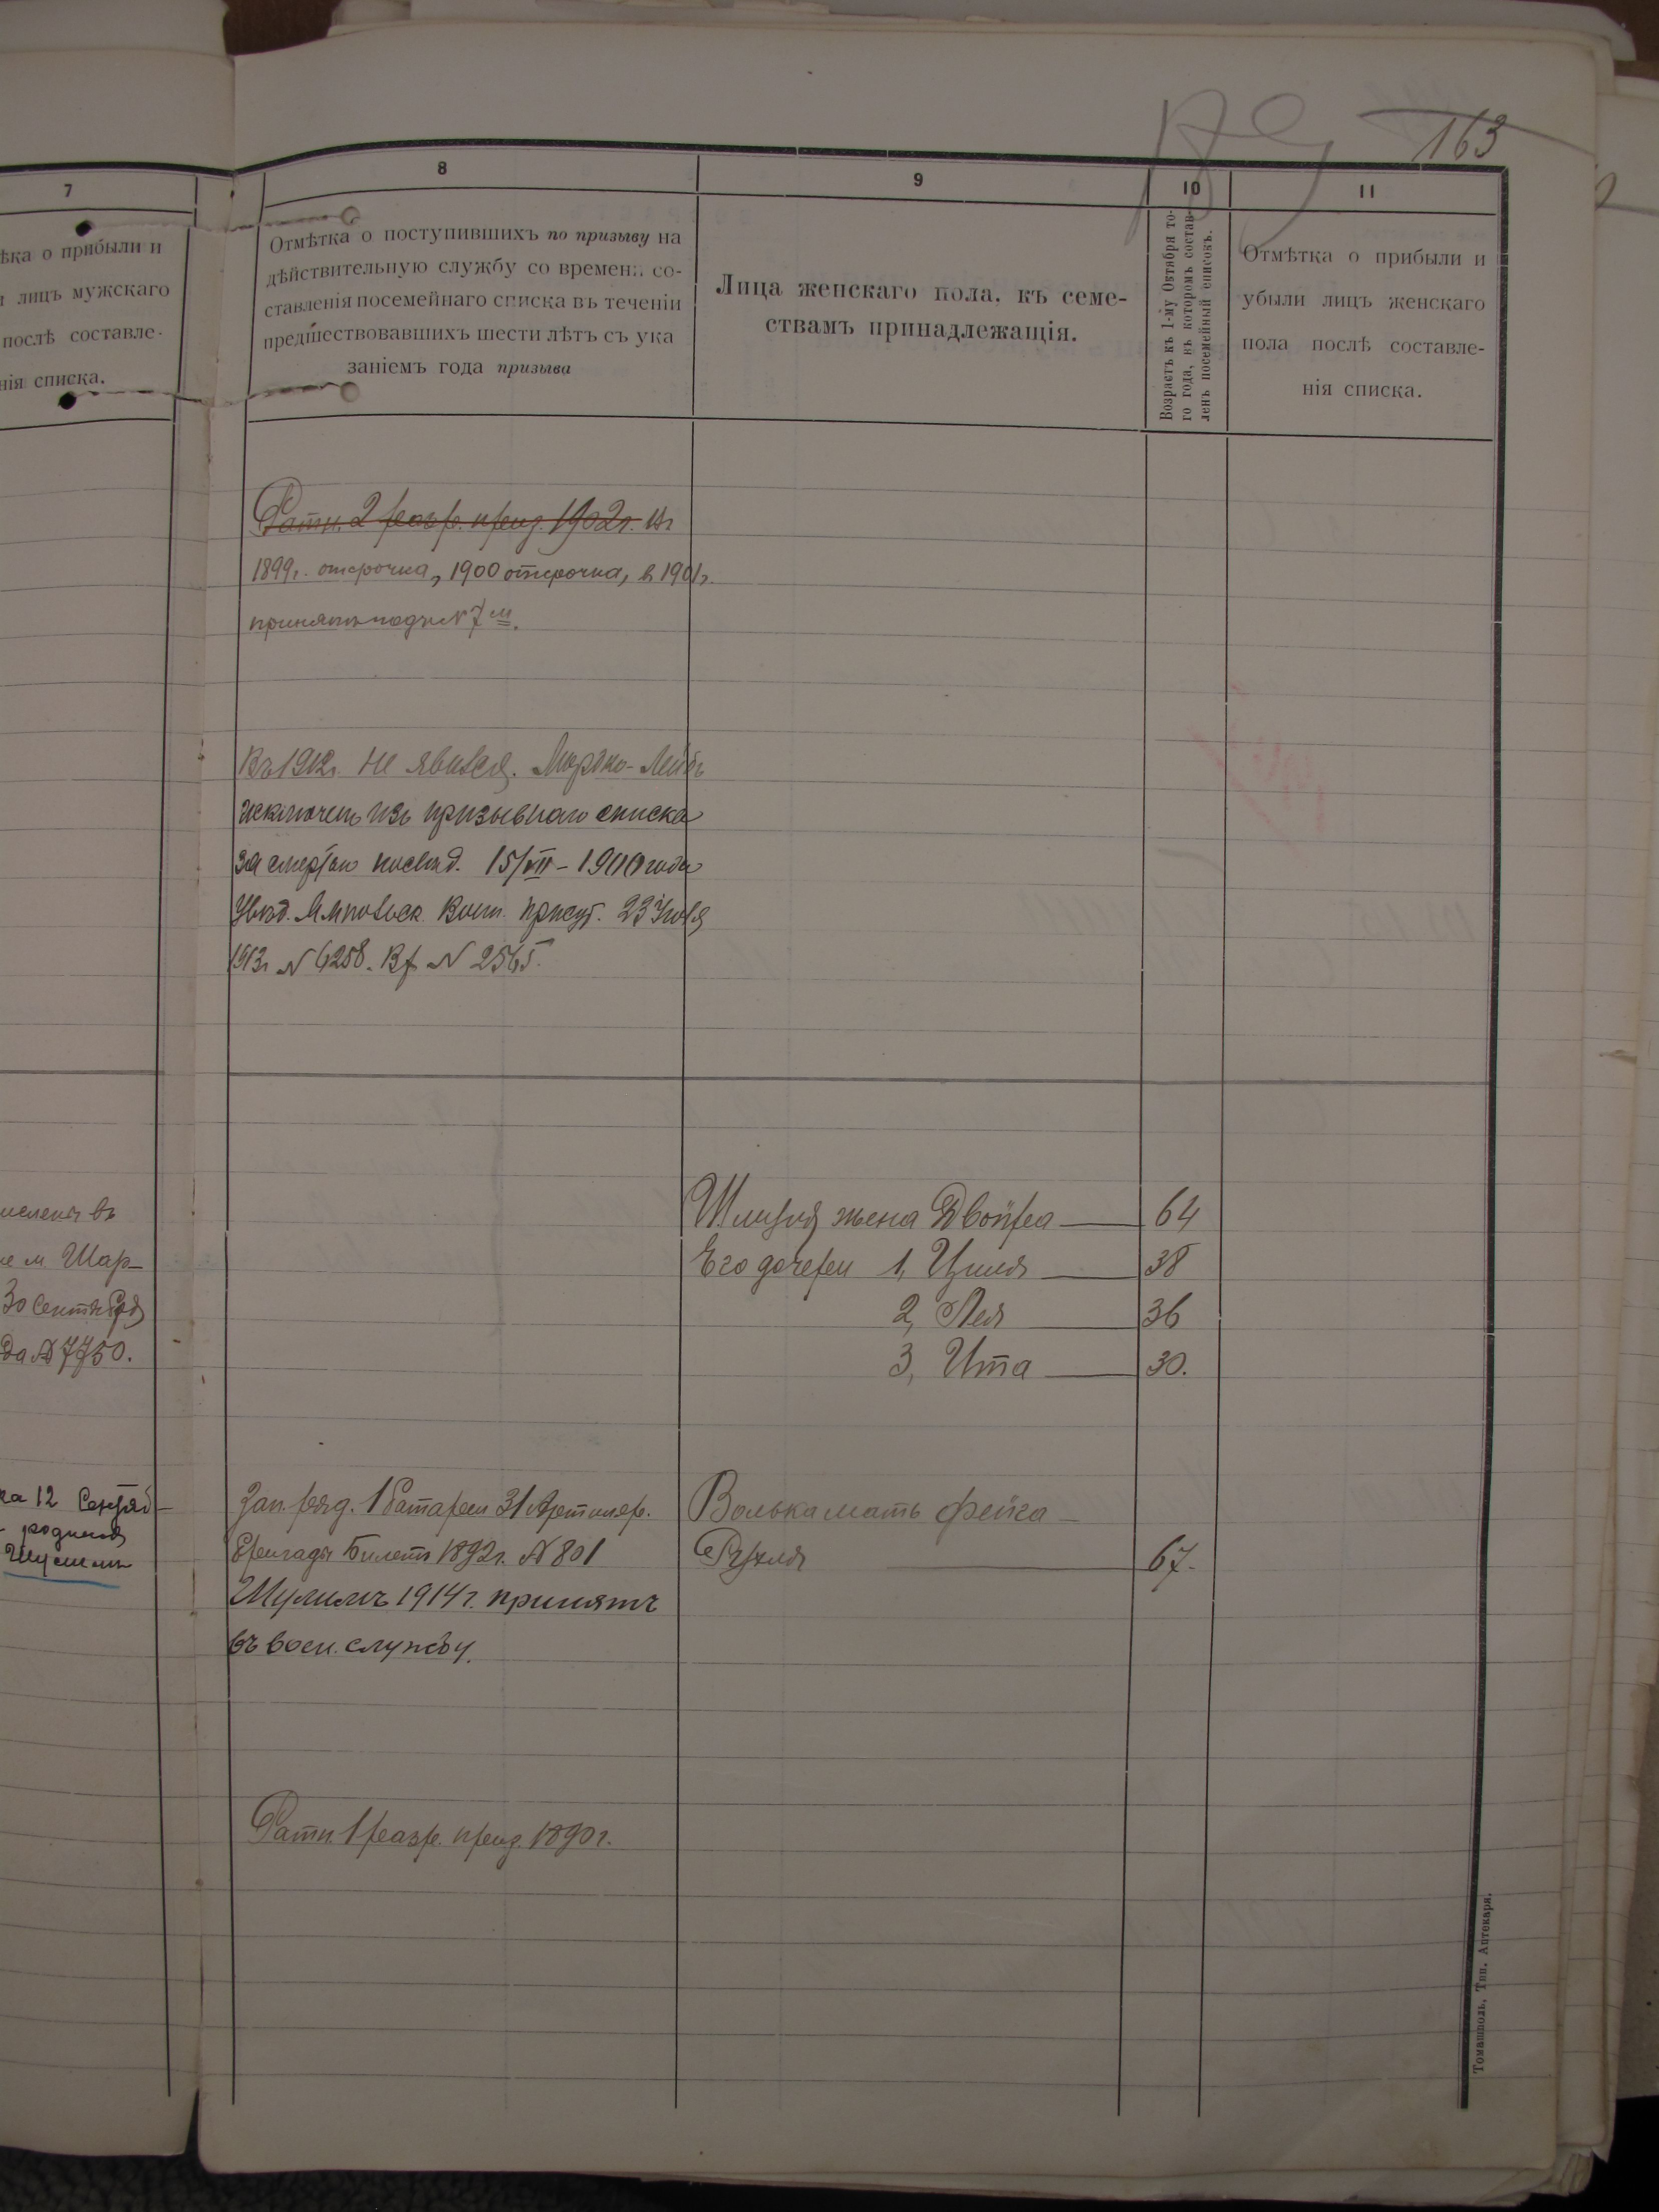 163
7
8
9
10
11
ѣка о прибыли и
лицъ мужскаго
послѣ составле-
нія списка.
Отмѣтка о поступившихъ по призыву на
дѣйствительную службу со времени со-
ставленія посемейнаго списка въ теченіи
предшествовавшихъ шести лѣтъ съ ука
заніемъ года призыва
Лица женскаго пола, къ семе-
ствамъ принадлежащія.
Возрастъ къ 1-му Октября то-
го года, въ которомъ состав-
ленъ посемейный списокъ.
Отмѣтка о прибыли и
убыли лицъ женскаго
пола послѣ составле-
нія списка.
Ратн. 2 разр. призд. 1902г. Въ
1899г. отсрочка, 1900 отсрочка, в 1901г.
принятъ подъ N 7м.
Въ 1912г. не явился. Мирко-Лейбъ
исключенъ изъ призывнаго списка
за смертью послѣд. 15/VII-1900 года
Увѣд. Ямпольск. Воин. присут. 23 Іюля
1913г N 6258. Вх N 2565.
Шлизмя жена Двойра 64
Его дочери 1, Циля 38
2, Лея 36
3, Ита 30.
численъ въ
м. Шар-
30 Сентября
да № 7750.
ка 12 Сентяб-
родился
Шулимъ
Зап. ряд. 1 батареи 31 Артилер.
Бригады Билетъ 1892г. № 801
Шулимъ 1914г. принятъ
въ воен. службу.
Волька мать Фейга
Рухля 67.
Ратн. 1 разр. призд. 1890г.
Томашполь, Тип. Аптекаря.